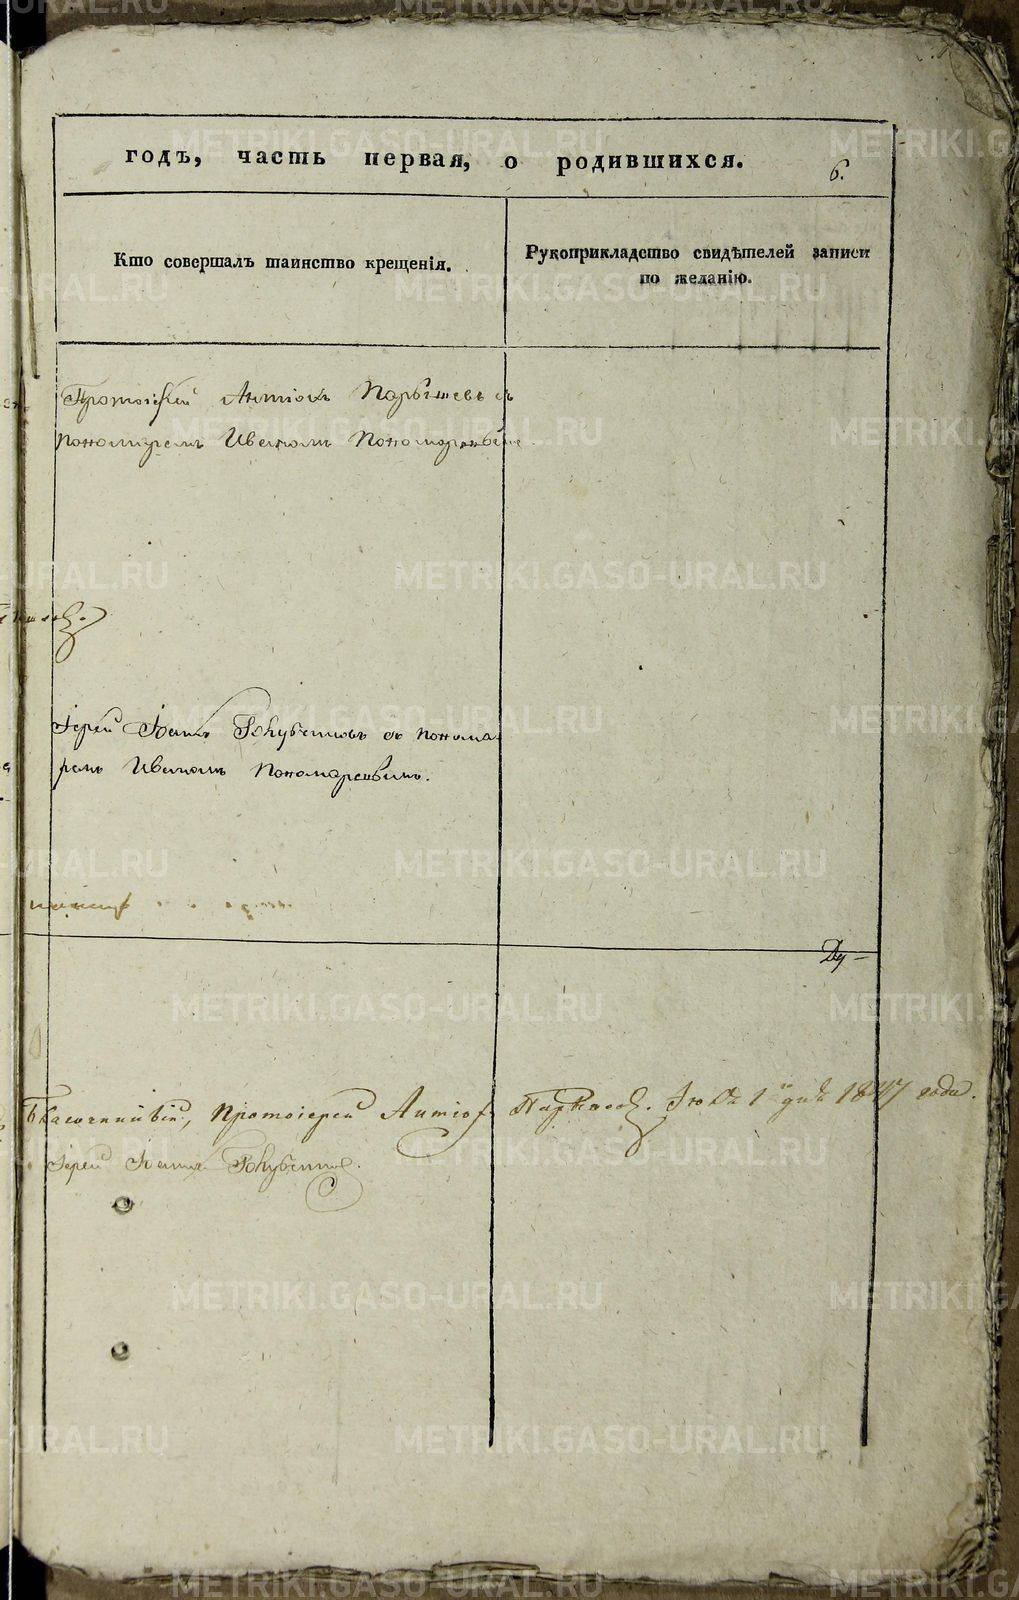 годъ, часть первая, о родившихся.
6.
Кто совершалъ таинство крещенія.
Рукоприкладство свидѣтелей записи
по желанію.
Протоіерей Антіохъ Парышевъ съ
пономаремъ Иваномъ Пономаревымъ.
Іерей Іоаннъ Голубетновъ съ понома-
ремъ Иваномъ Пономаревымъ.
Ду-
Благочинный, Протоіерей Антіохъ Парышевъ. Іюля 1 дня 1847 года.
Іерей Іоаннъ
METRIKI.GASO-URAL.RU